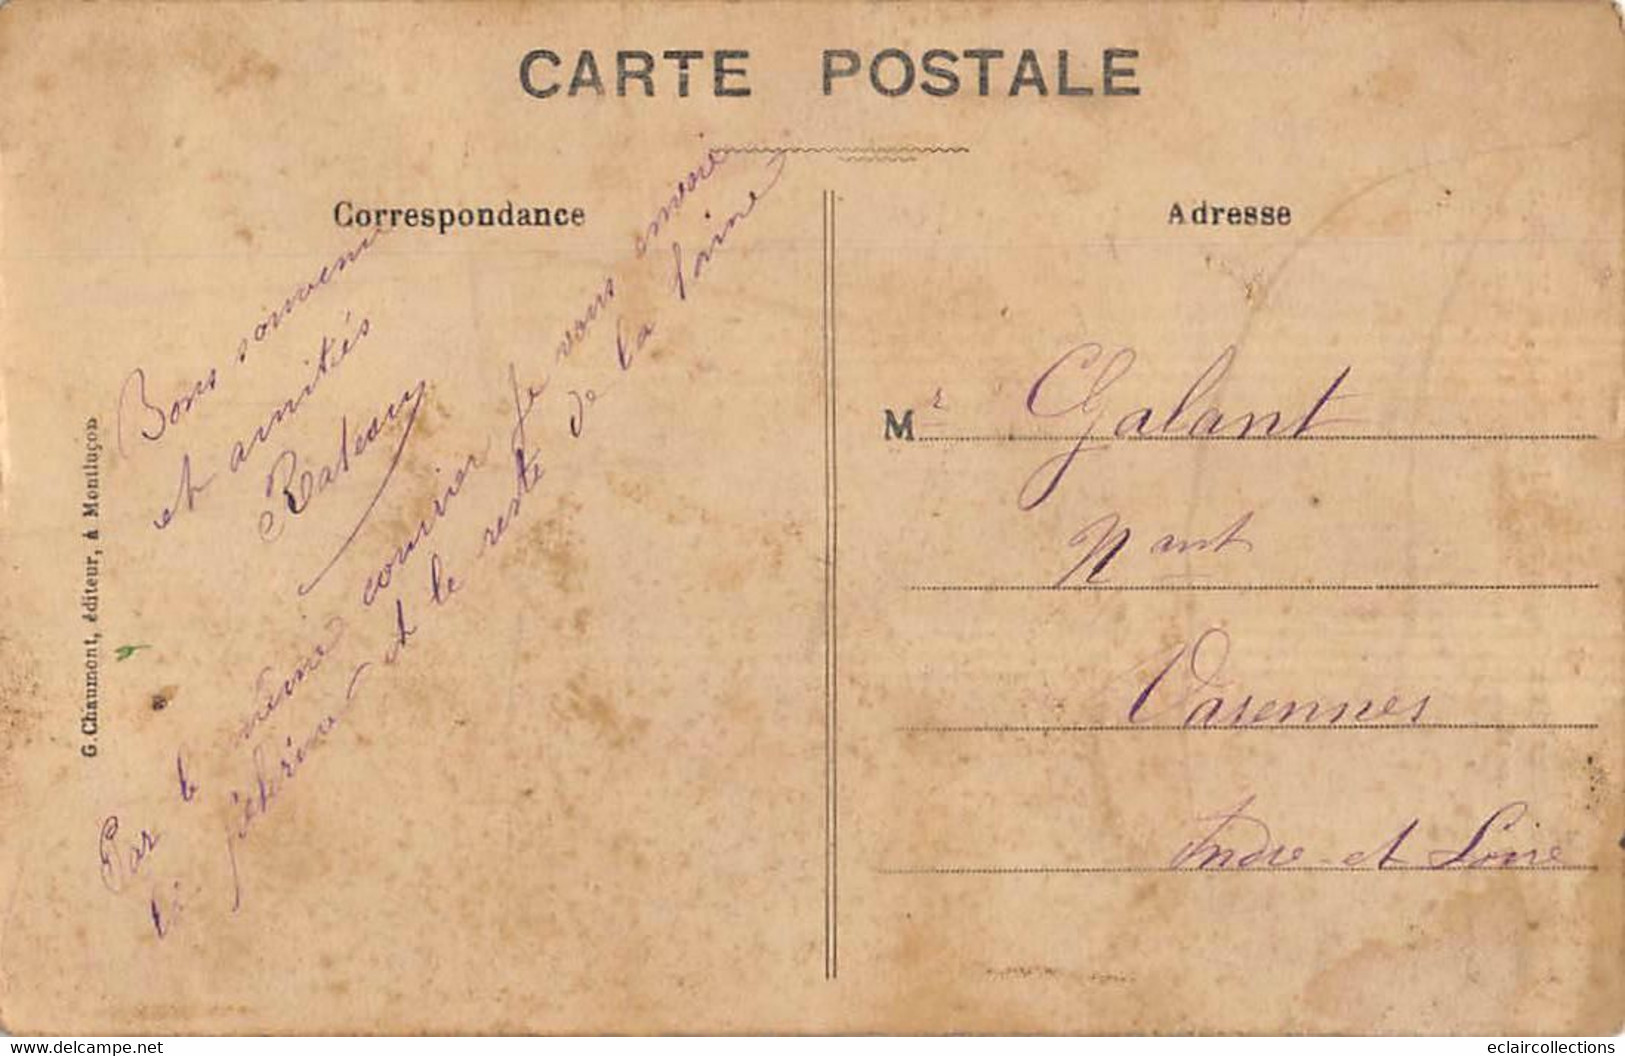 CARTE POSTALE
Correspondance
Adresse
Bons souvenir
et amitiés
Rateau
Par le même courrier je vous envoie
la pèlerine et le reste de la laine
G. Chaumont, éditeur, à Montluçon
Mr Galant
Nant
Varennes
Indre et Loire
www.delcampe.net
eclaircollections